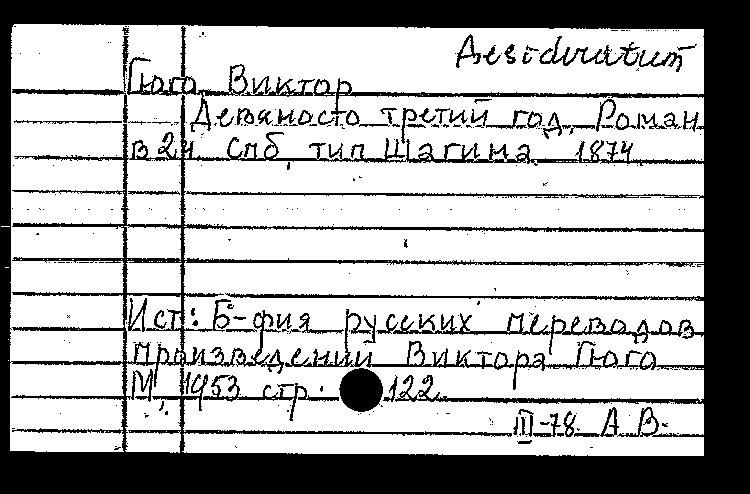 Desideratum
Гюго, Виктор
Девяносто третий год. Роман
в 2 ч. Спб, тип Шагина 1874
Ист: Б-фия русских переводов
произведений Виктора Гюго
М, 1953 стр. 122.
III-78 А. В.